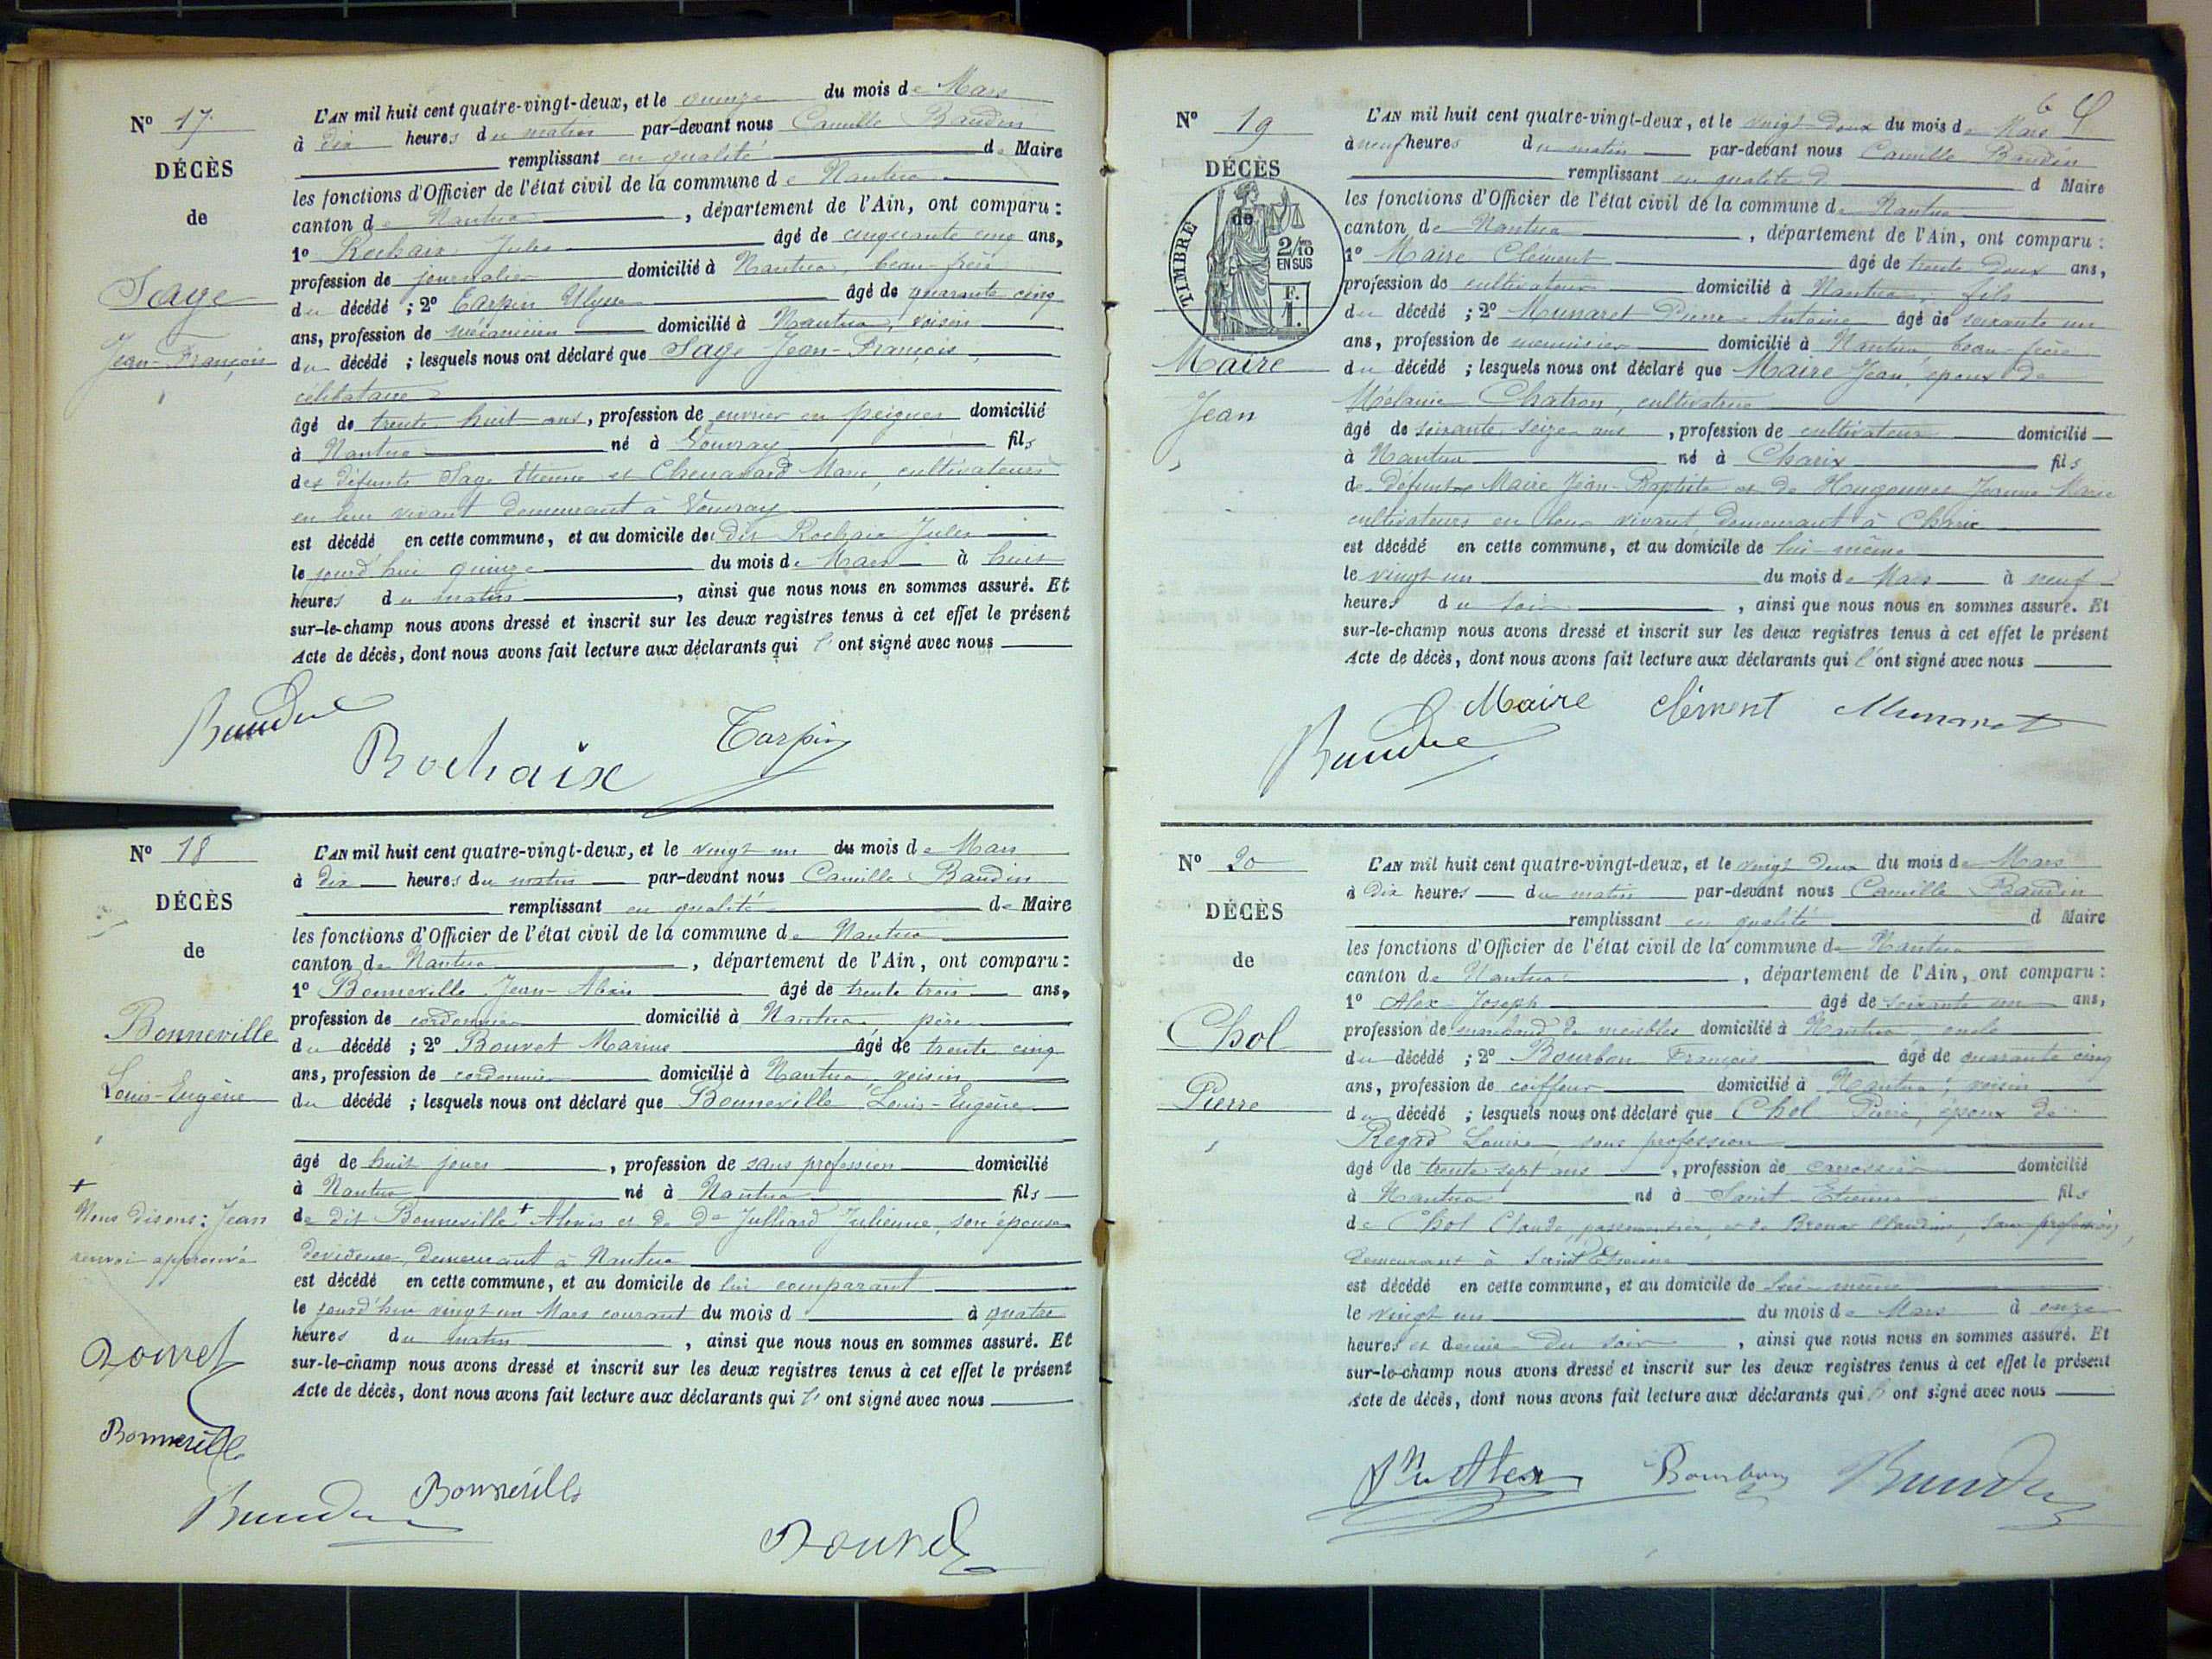 N° 17
DÉCÈS
de
Sage
Jean-François
L'AN mil huit cent quatre-vingt-deux, et le quinze du mois de Mars
à dix heures du matin par-devant nous Camille Baudin
remplissant en qualité de Maire
les fonctions d'Officier de l'état civil de la commune de Nantua
canton de Nantua, département de l'Ain, ont comparu :
1° Rochaix Jules âgé de cinquante cinq ans,
profession de journalier domicilié à Nantua, beau-frère
du décédé ; 2° Carpin Ulysse âgé de quarante cinq
ans, profession de mécanicien domicilié à Nantua, voisin
du décédé ; lesquels nous ont déclaré que Sage Jean-François,
célibataire
âgé de trente huit ans, profession de ouvrier en peignes domicilié
à Nantua né à Vouvray fils
des défunts Sage Etienne et Chenavard Marie, cultivateurs
en leur vivant demeurant à Vouvray
est décédé en cette commune, et au domicile de dit Rochaix Jules
le jourd'hui quinze du mois de Mars à huit
heures du matin, ainsi que nous nous en sommes assuré. Et
sur-le-champ nous avons dressé et inscrit sur les deux registres tenus à cet effet le présent
Acte de décès, dont nous avons fait lecture aux déclarants qui l'ont signé avec nous
Baudin
Rochaix Carpin
N° 18
DÉCÈS
de
Bonneville
Louis-Eugène
+
Nous disons : Jean
renvoi approuvé
Bouvet
Bonneville
L'AN mil huit cent quatre-vingt-deux, et le vingt un du mois de Mars
à dix heures du matin par-devant nous Camille Baudin
remplissant en qualité de Maire
les fonctions d'Officier de l'état civil de la commune de Nantua
canton de Nantua, département de l'Ain, ont comparu :
1° Bonneville Jean-Alexis âgé de trente trois ans,
profession de cordonnier domicilié à Nantua père
du décédé ; 2° Bouvet Marius âgé de trente cinq
ans, profession de cordonnier domicilié à Nantua, voisin
du décédé ; lesquels nous ont déclaré que Bonneville Louis-Eugène
âgé de huit jours, profession de sans profession domicilié
à Nantua né à Nantua fils
de dit Bonneville + Alexis et de De Julliard Julienne, son épouse
dévideuse, demeurant à Nantua
est décédé en cette commune, et au domicile de lui comparant
le jourd'hui vingt un Mars courant du mois d à quatre
heures du matin, ainsi que nous nous en sommes assuré. Et
sur-le-champ nous avons dressé et inscrit sur les deux registres tenus à cet effet le présent
Acte de décès, dont nous avons fait lecture aux déclarants qui l'ont signé avec nous
Baudin Bonneville Bouvet
6
N° 19
DÉCÈS
de
TIMBRE
2/10 EN SUS
F. 1.
Maire
Jean
L'AN mil huit cent quatre-vingt-deux, et le vingt deux du mois de Mars
à neuf heures du matin par-devant nous Camille Baudin
remplissant en qualité d d Maire
les fonctions d'Officier de l'état civil de la commune de Nantua
canton de Nantua, département de l'Ain, ont comparu :
1° Maire Clément âgé de trente deux ans,
profession de cultivateur domicilié à Nantua, fils
du décédé ; 2° Munaret Pierre Antoine âgé de soixante un
ans, profession de menuisier domicilié à Nantua, beau-frère
du décédé ; lesquels nous ont déclaré que Maire Jean, époux de
Mélanie Chatron, cultivatrice
âgé de soixante seize ans, profession de cultivateur domicilié
à Nantua né à Charix fils
de défunts Maire Jean-Baptiste et de Hugonnet Jeanne Marie
cultivateurs en leur vivant demeurant à Charix
est décédé en cette commune, et au domicile de lui-même
le vingt un du mois de Mars à neuf
heures du soir, ainsi que nous nous en sommes assuré. Et
sur-le-champ nous avons dressé et inscrit sur les deux registres tenus à cet effet le présent
Acte de décès, dont nous avons fait lecture aux déclarants qui l'ont signé avec nous
Baudin Maire Clément Munaret
N° 20
DÉCÈS
de
Chol
Pierre
L'AN mil huit cent quatre-vingt-deux, et le vingt deux du mois de Mars
à dix heures du matin par-devant nous Camille Baudin
remplissant en qualité d Maire
les fonctions d'Officier de l'état civil de la commune de Nantua
canton de Nantua, département de l'Ain, ont comparu :
1° Alex Joseph âgé de soixante un ans,
profession de marchand de meubles domicilié à Nantua, oncle
du décédé ; 2° Bourbon François âgé de quarante cinq
ans, profession de coiffeur domicilié à Nantua, voisin
du décédé ; lesquels nous ont déclaré que Chol Pierre, époux de
Regad Louise, sans profession
âgé de trente sept ans, profession de carrossier domicilié
à Nantua né à Saint-Etienne fils
de Chol Claude, passementier, et de Claudine, sans profession,
demeurant à Saint Etienne
est décédé en cette commune, et au domicile de lui-même
le vingt un du mois de Mars à onze
heures et demie du soir, ainsi que nous nous en sommes assuré. Et
sur-le-champ nous avons dressé et inscrit sur les deux registres tenus à cet effet le présent
Acte de décès, dont nous avons fait lecture aux déclarants qui l'ont signé avec nous
Alex Bourbon Baudin